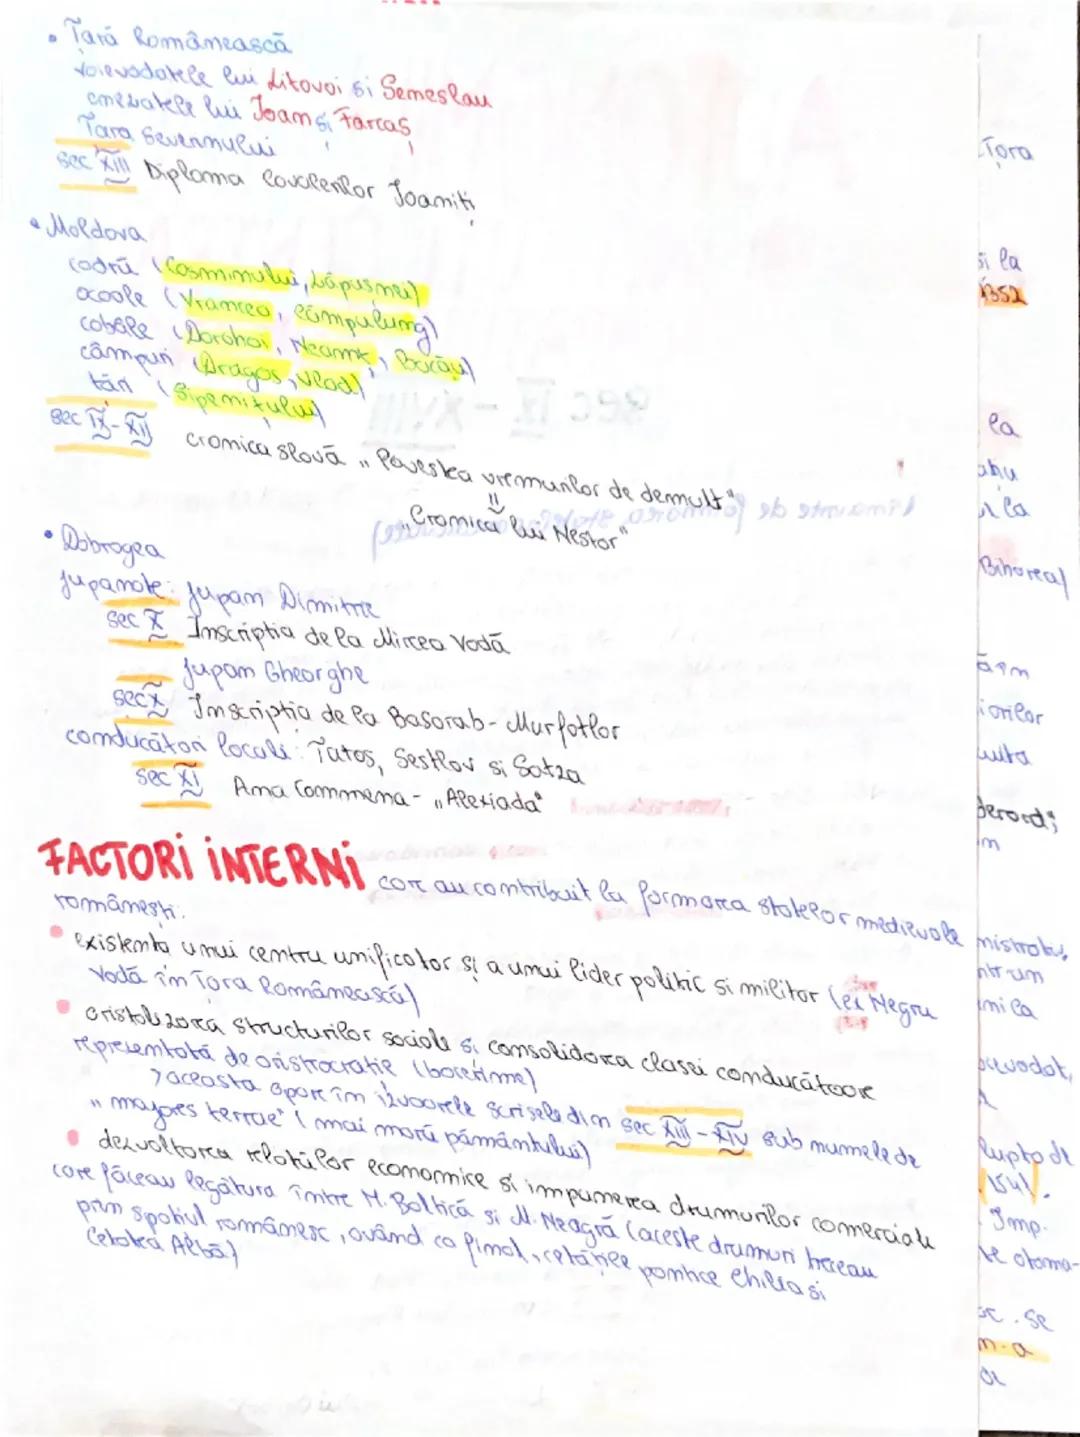 • Țară Românească
voievodatele lui Litovoi si Semeslau
cnezatele lui Ioan și Farcaș
Țara Severinului
sec XIII Diploma Cavalerilor Ioaniți
• Moldova
codrii (Cosminului, Lăpusnei)
ocoale (Vrancea, Câmpulung)
cobâle (Dorohoi, Neamț, Bacău)
câmpuri (Dragoș, Vlad)
țări (Sipenițului)
sec IX-XII cronica slavă „Povestea vremurilor de demult"
"
„Cronica lui Nestor"
• Dobrogea
jupanate: jupan Dimitrie
sec X Inscripția de la Mircea Vodă
jupan Gheorghe
sec X Inscripția de la Basarab-Murfatlar
conducători locali: Tatos, Sestlav si Satza
sec XI Ana Comnena - „Alexiada"
FACTORI INTERNI care au contribuit la formarea statelor medievale
românești:
• existența unui centru unificator și a unui lider politic si militar (ex Negru
Vodă în Țara Românească)
• cristalizarea structurilor sociale și consolidarea clasei conducătoare
reprezentată de aristocrație (boierime)
> aceasta apare în izvoarele scrise din sec XIII-XIV sub numele de
„majores terrae" (mai marii pământului)
• dezvoltarea relațiilor economice și impunerea drumurilor comerciale
care făceau legătura între M. Baltică și M. Neagră (aceste drumuri treceau
prin spațiul românesc, având ca final, cetățile pontice Chilia si
Cetatea Albă)
Țara
si la
1352
la
la
Bihorea)
iorilor
m
ntr un
lupta de
1541.
Imp.
te otoma-
se